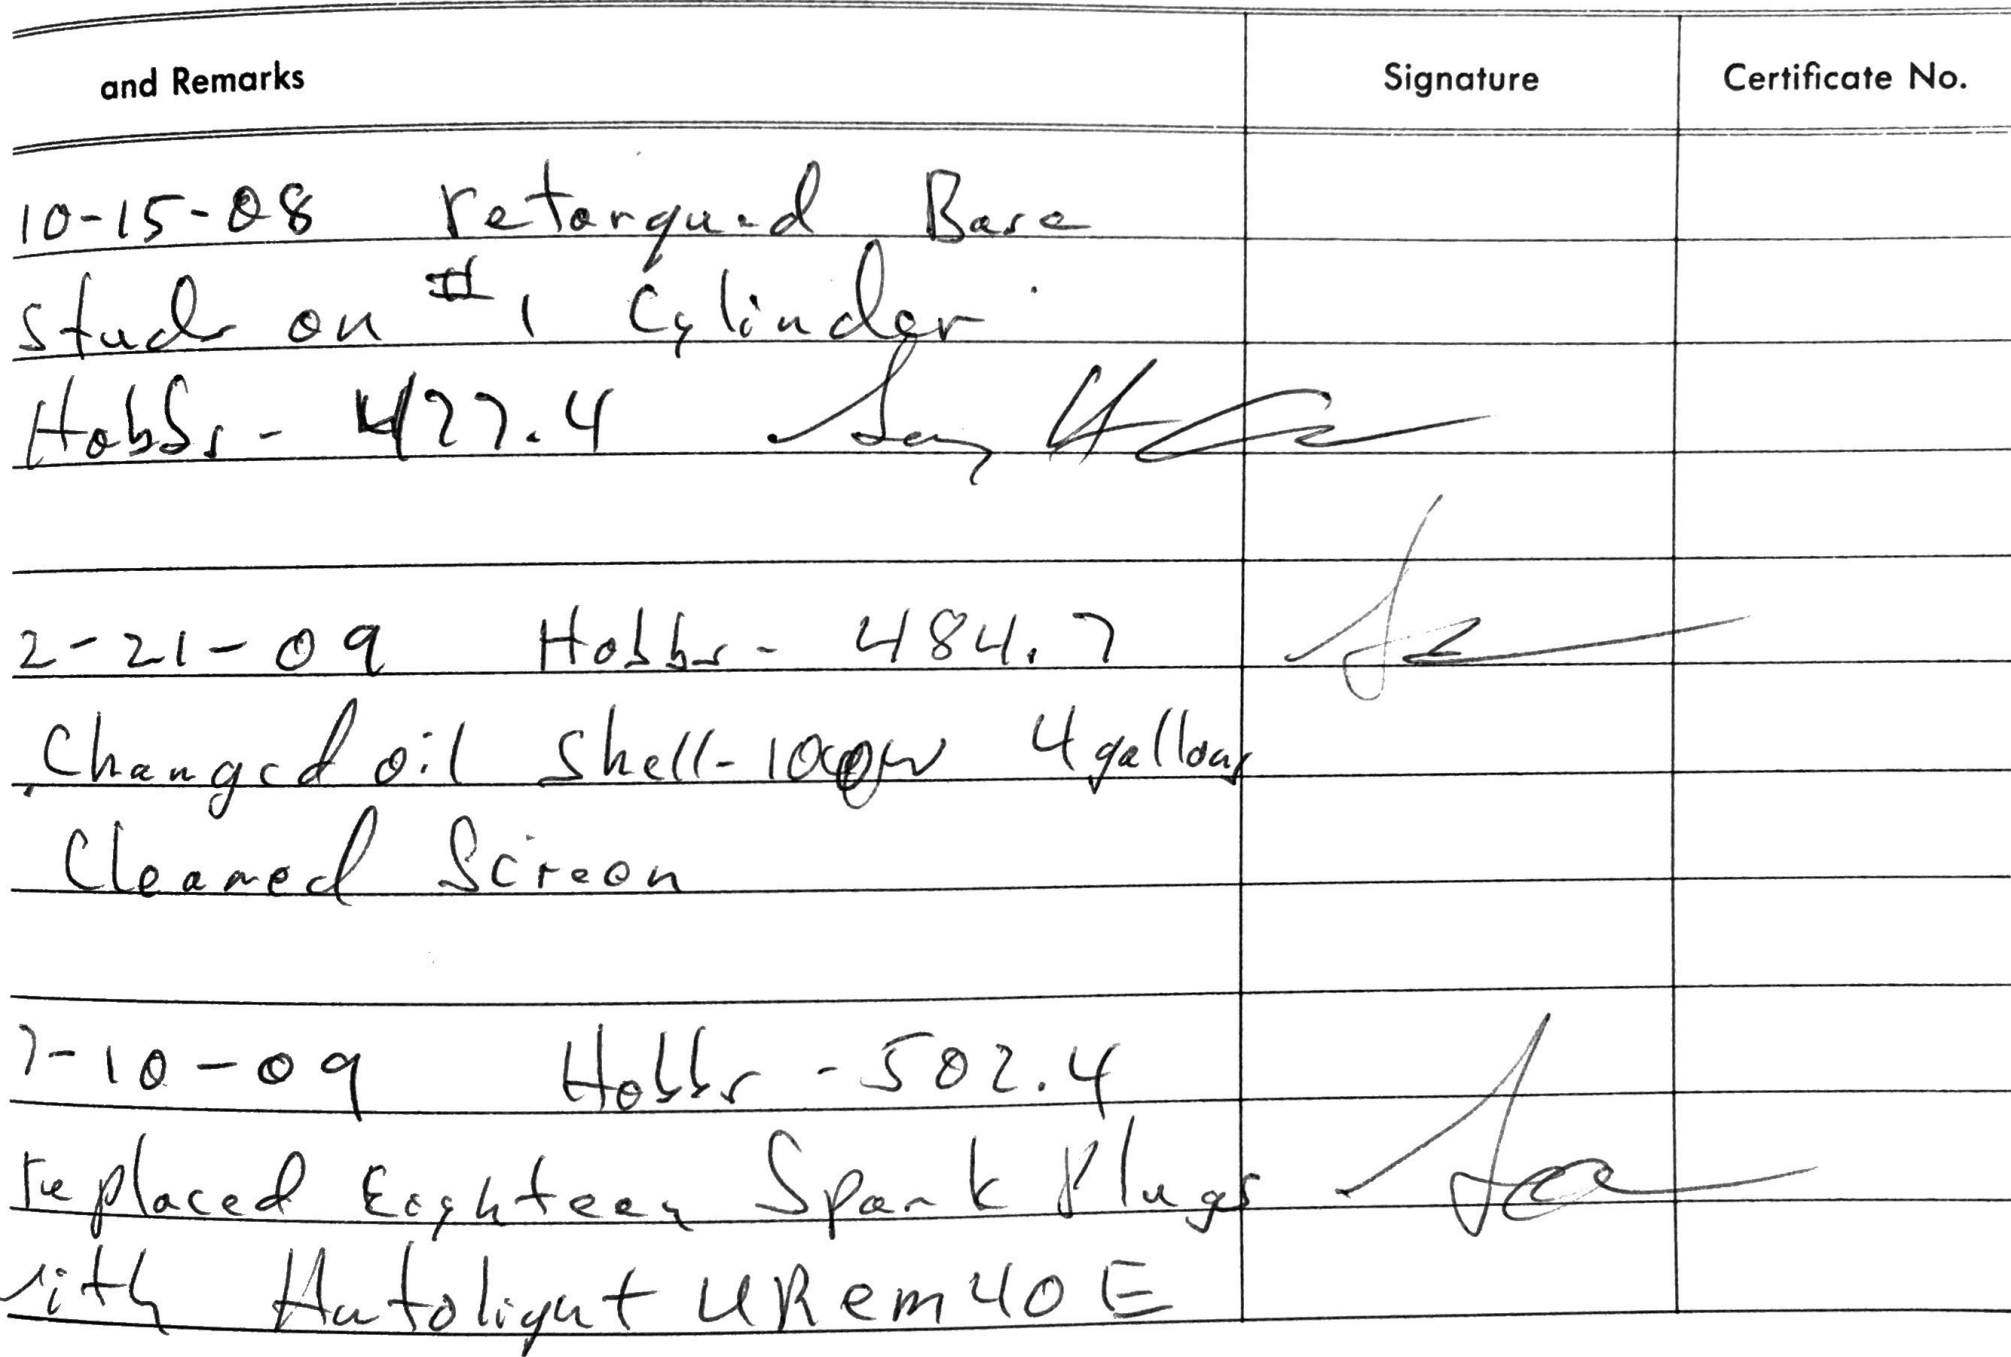 and Remarks Signature Certificate No.
10-15-08 retorqued Base
studs on #1 Cylinder
Hobbs - 427.4
2-21-09 Hobbs - 484.7
Changed oil Shell-100W 4 gallons
Cleaned Screen
7-10-09 Hobbs - 502.4
replaced Eighteen Spark Plugs
with Autolight URem40E